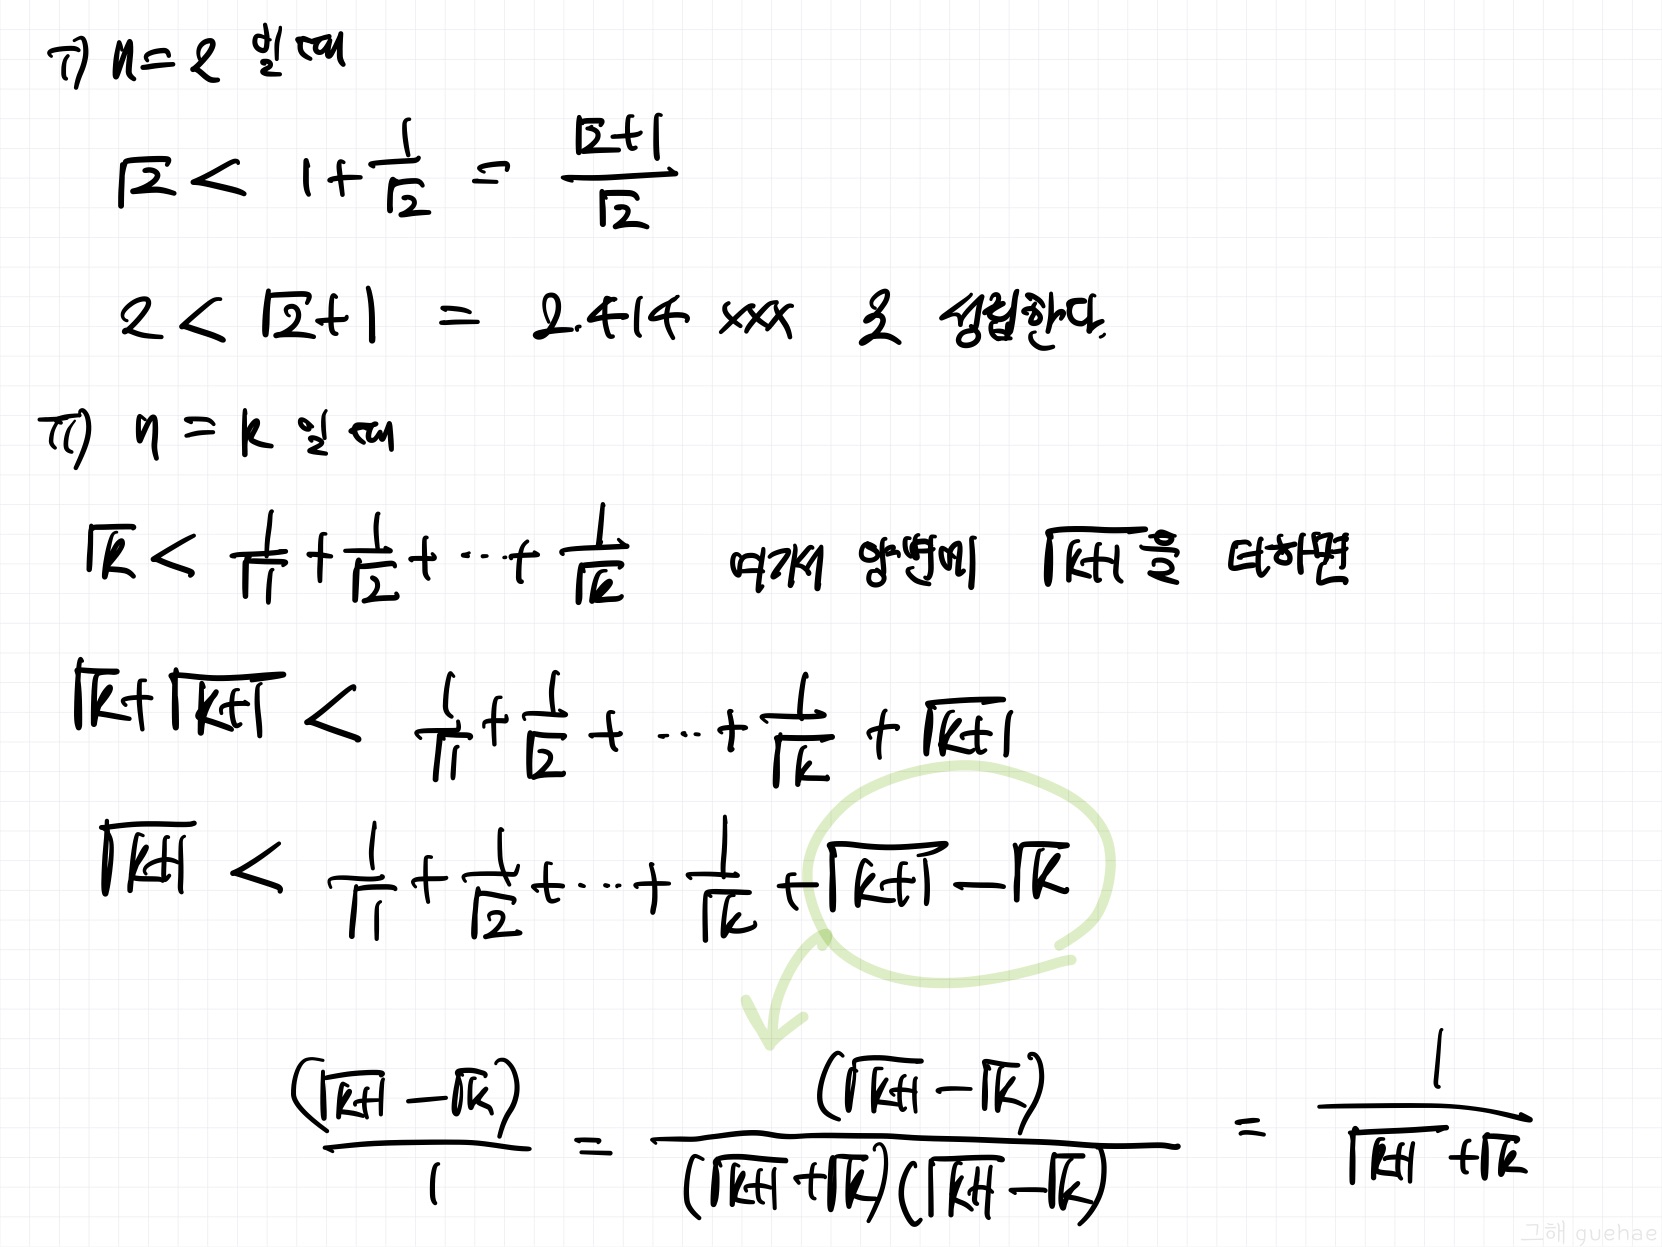 i) n=2 일 때
√2 < 1 + 1/√2 = (√2+1)/√2
2 < √2+1 = 2.414 xxx 로 성립한다.
ii) n = k 일 때
√k < 1/√1 + 1/√2 + ··· + 1/√k 여기서 양변에 √(k+1)을 더하면
√k + √(k+1) < 1/√1 + 1/√2 + ··· + 1/√k + √(k+1)
√(k+1) < 1/√1 + 1/√2 + ··· + 1/√k + √(k+1) − √k
(√(k+1) − √k)/1 = (√(k+1) − √k)/((√(k+1) + √k)(√(k+1) − √k)) = 1/(√(k+1) + √k)
그해 guehae